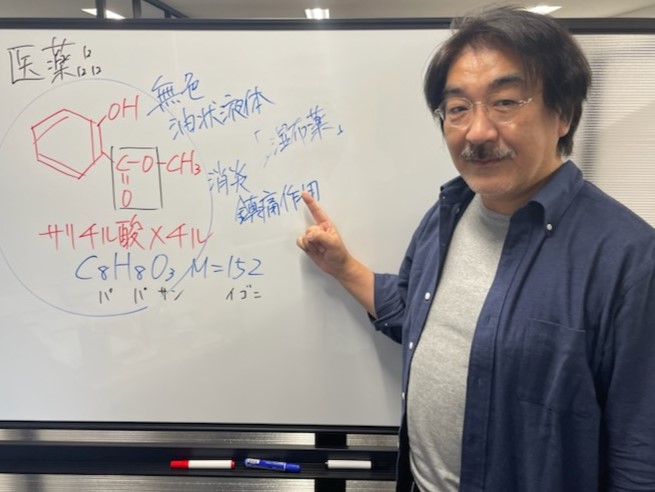 医薬
12
12 12
無色
油状液体
「湿布薬」
消炎
鎮痛作用
OH
C-O-CH3
O
サリチル酸メチル
C8H8O3 M=152
パ パ サン イゴニ